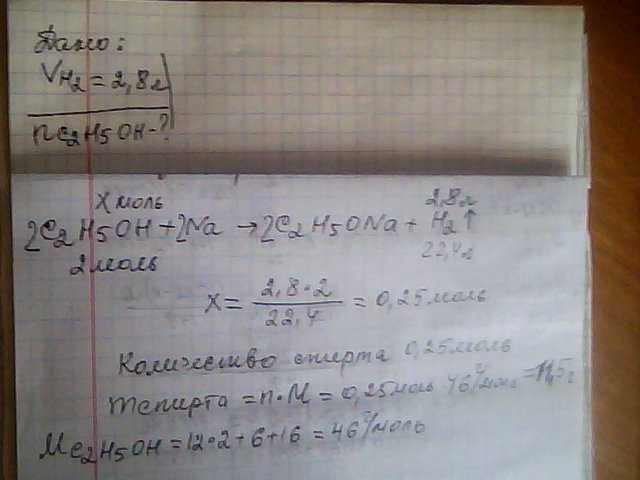 Дано:
VH2 = 2,8л
nC2H5OH-?
X моль 2,8л
2C2H5OH + 2Na → 2C2H5ONa + H2↑
2 моль 22,4л
X = 2,8·2 / 22,4 = 0,25 моль
Количество спирта 0,25 моль
mспирта = n·M = 0,25 моль 46 г/моль = 11,5г
MC2H5OH = 12·2+6+16 = 46 г/моль